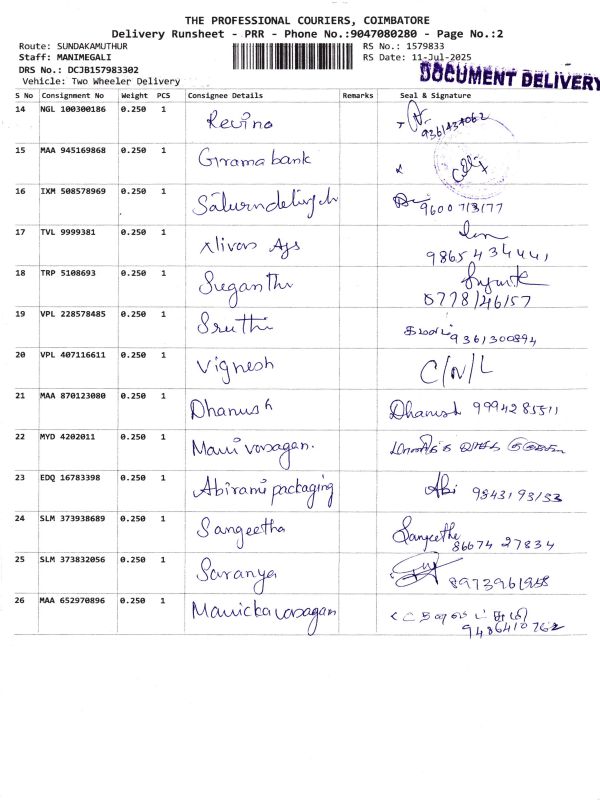 THE PROFESSIONAL COURIERS, COIMBATORE
Delivery Runsheet - PRR - Phone No.:9047080280 - Page No.:2
Route: SUNDAKAMUTHUR RS No.: 1579833
Staff: MANIMEGALI RS Date: 11-Jul-2025
DRS No.: DCJB157983302
DOCUMENT DELIVERY
Vehicle: Two Wheeler Delivery
S No Consignment No Weight PCS Consignee Details Remarks Seal & Signature
14 NGL 100300186 0.250 1 Revino 9361434062
15 MAA 945169868 0.250 1 Girama bank
16 IXM 508578969 0.250 1 96007/3/77
17 TVL 9999381 0.250 1 9865434441
18 TRP 5108693 0.250 1 Suganthi
19 VPL 228578485 0.250 1 Sruthi 9361300894
20 VPL 407116611 0.250 1 Vignesh C/N/L
21 MAA 870123080 0.250 1 Dhanush Dhanush 9994285511
22 MYD 4202011 0.250 1 Mani vasagan.
23 EDQ 16783398 0.250 1 Abirami packaging Abi
24 SLM 373938689 0.250 1 Sangeetha Sangeetha
86674 27834
25 SLM 373832056 0.250 1 Saranya
26 MAA 652970896 0.250 1 Manickavasagan
9486410762